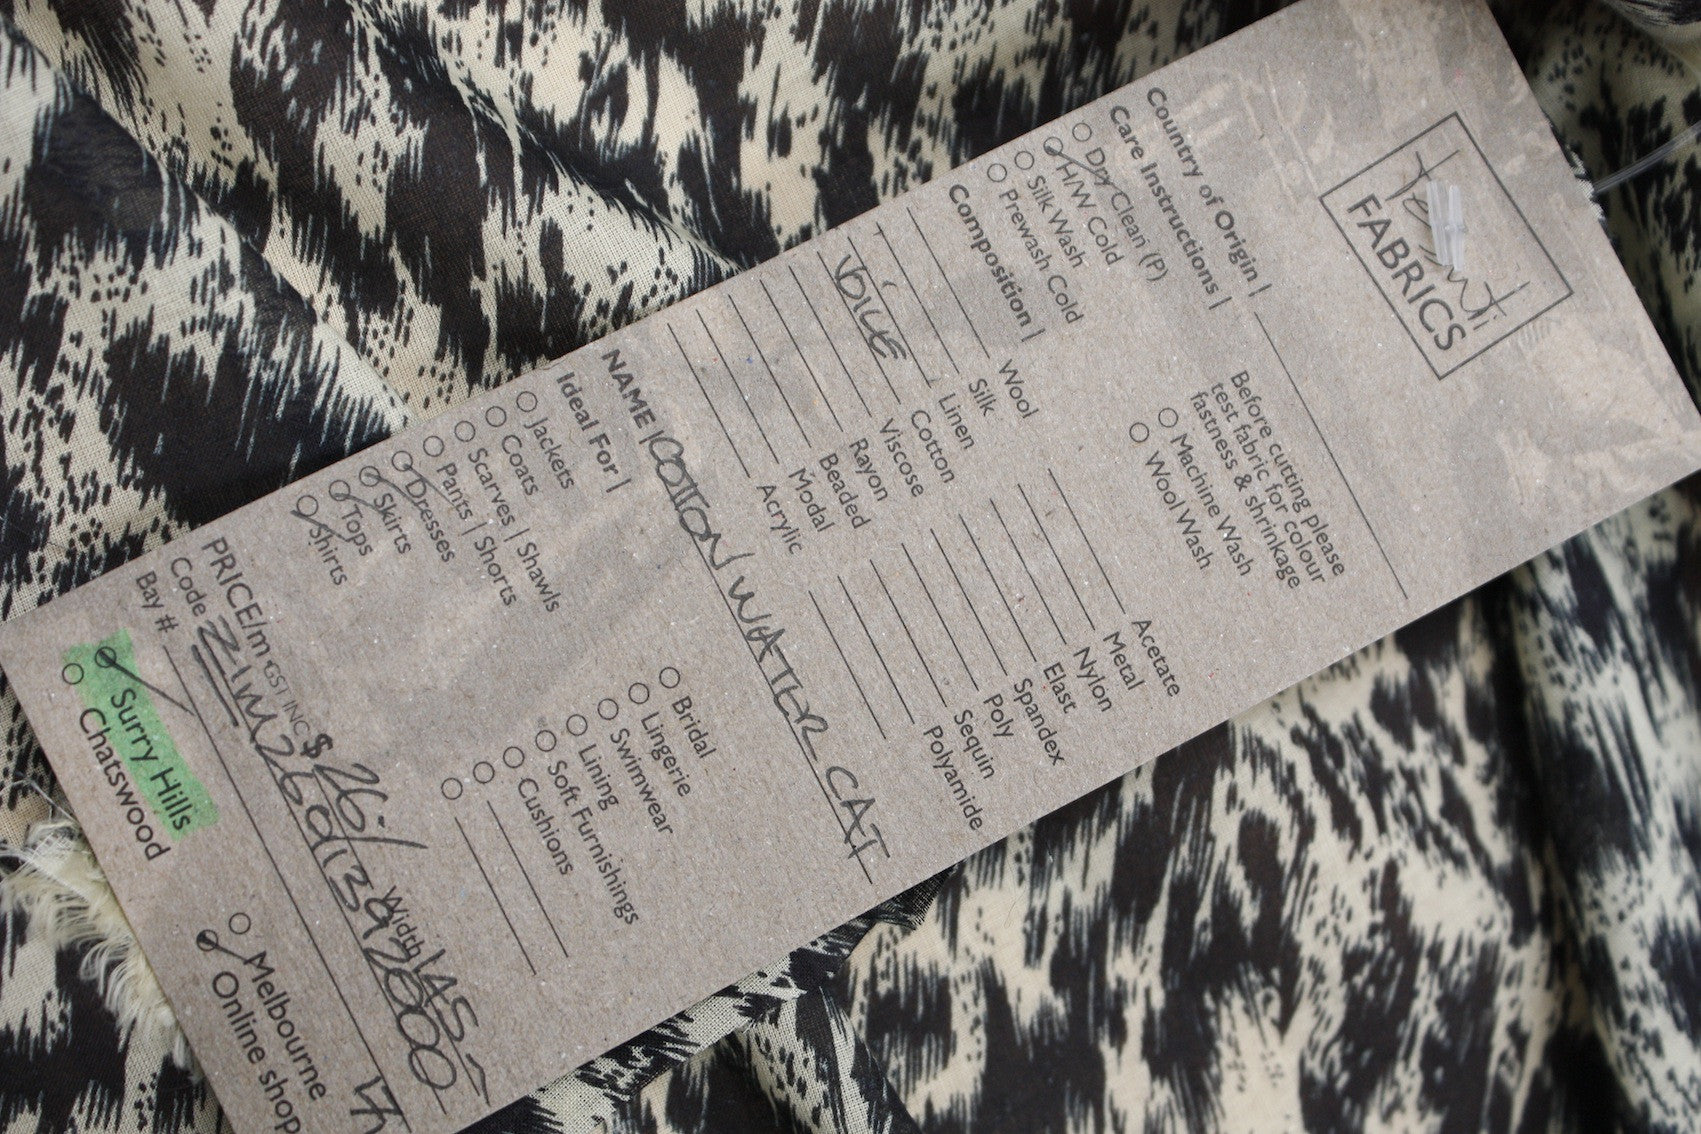 Tessuti
FABRICS
Country of Origin |
Care Instructions |
Dry Clean (P)
H/W Cold
Silk Wash
Prewash Cold
Before cutting please
test fabric for colour
fastness & shrinkage
Machine Wash
Wool Wash
Composition |
Wool
Silk
Linen
VOILE Cotton
Viscose
Rayon
Beaded
Modal
Acrylic
Acetate
Metal
Nylon
Elast
Spandex
Poly
Sequin
Polyamide
NAME | COTTON / WATER CAT
Ideal For |
Jackets
Coats
Scarves | Shawls
Pants | Shorts
Dresses
Skirts
Tops
Shirts
Bridal
Lingerie
Swimwear
Lining
Soft Furnishings
Cushions
PRICE/m GST INC $ 26.- Width 145
Code
Bay #
Surry Hills
Chatswood
Melbourne
Online shop